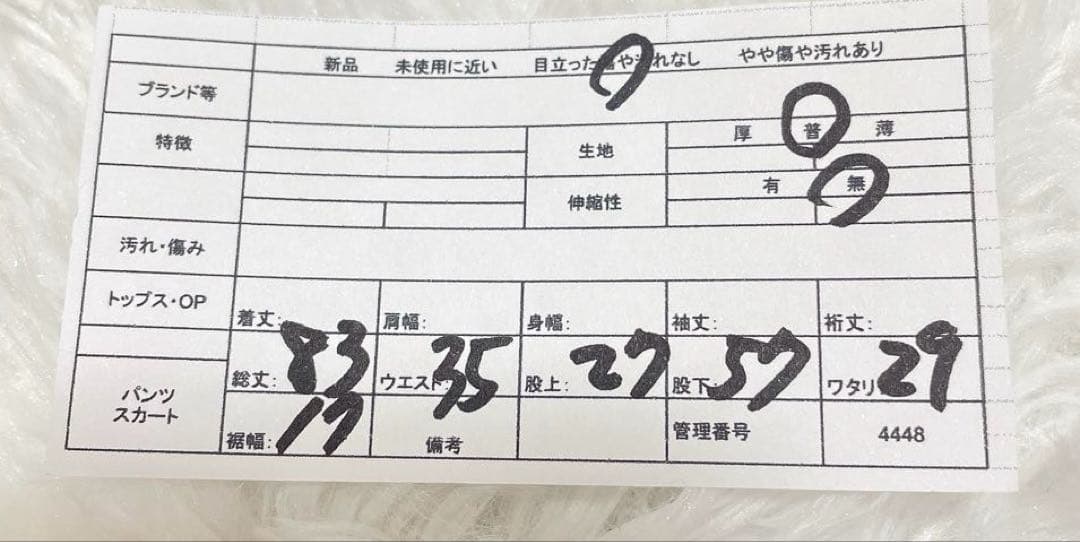 新品 未使用に近い 目立った傷や汚れなし やや傷や汚れあり
ブランド等
特徴 生地 厚 普 薄
伸縮性 有 無
汚れ・傷み
トップス・OP 着丈: 肩幅: 身幅: 袖丈: 裄丈:
パンツ
スカート
総丈: 83 ウエスト: 35 股上: 27 股下: 57 ワタリ 29
裾幅: 17 備考 管理番号 4448